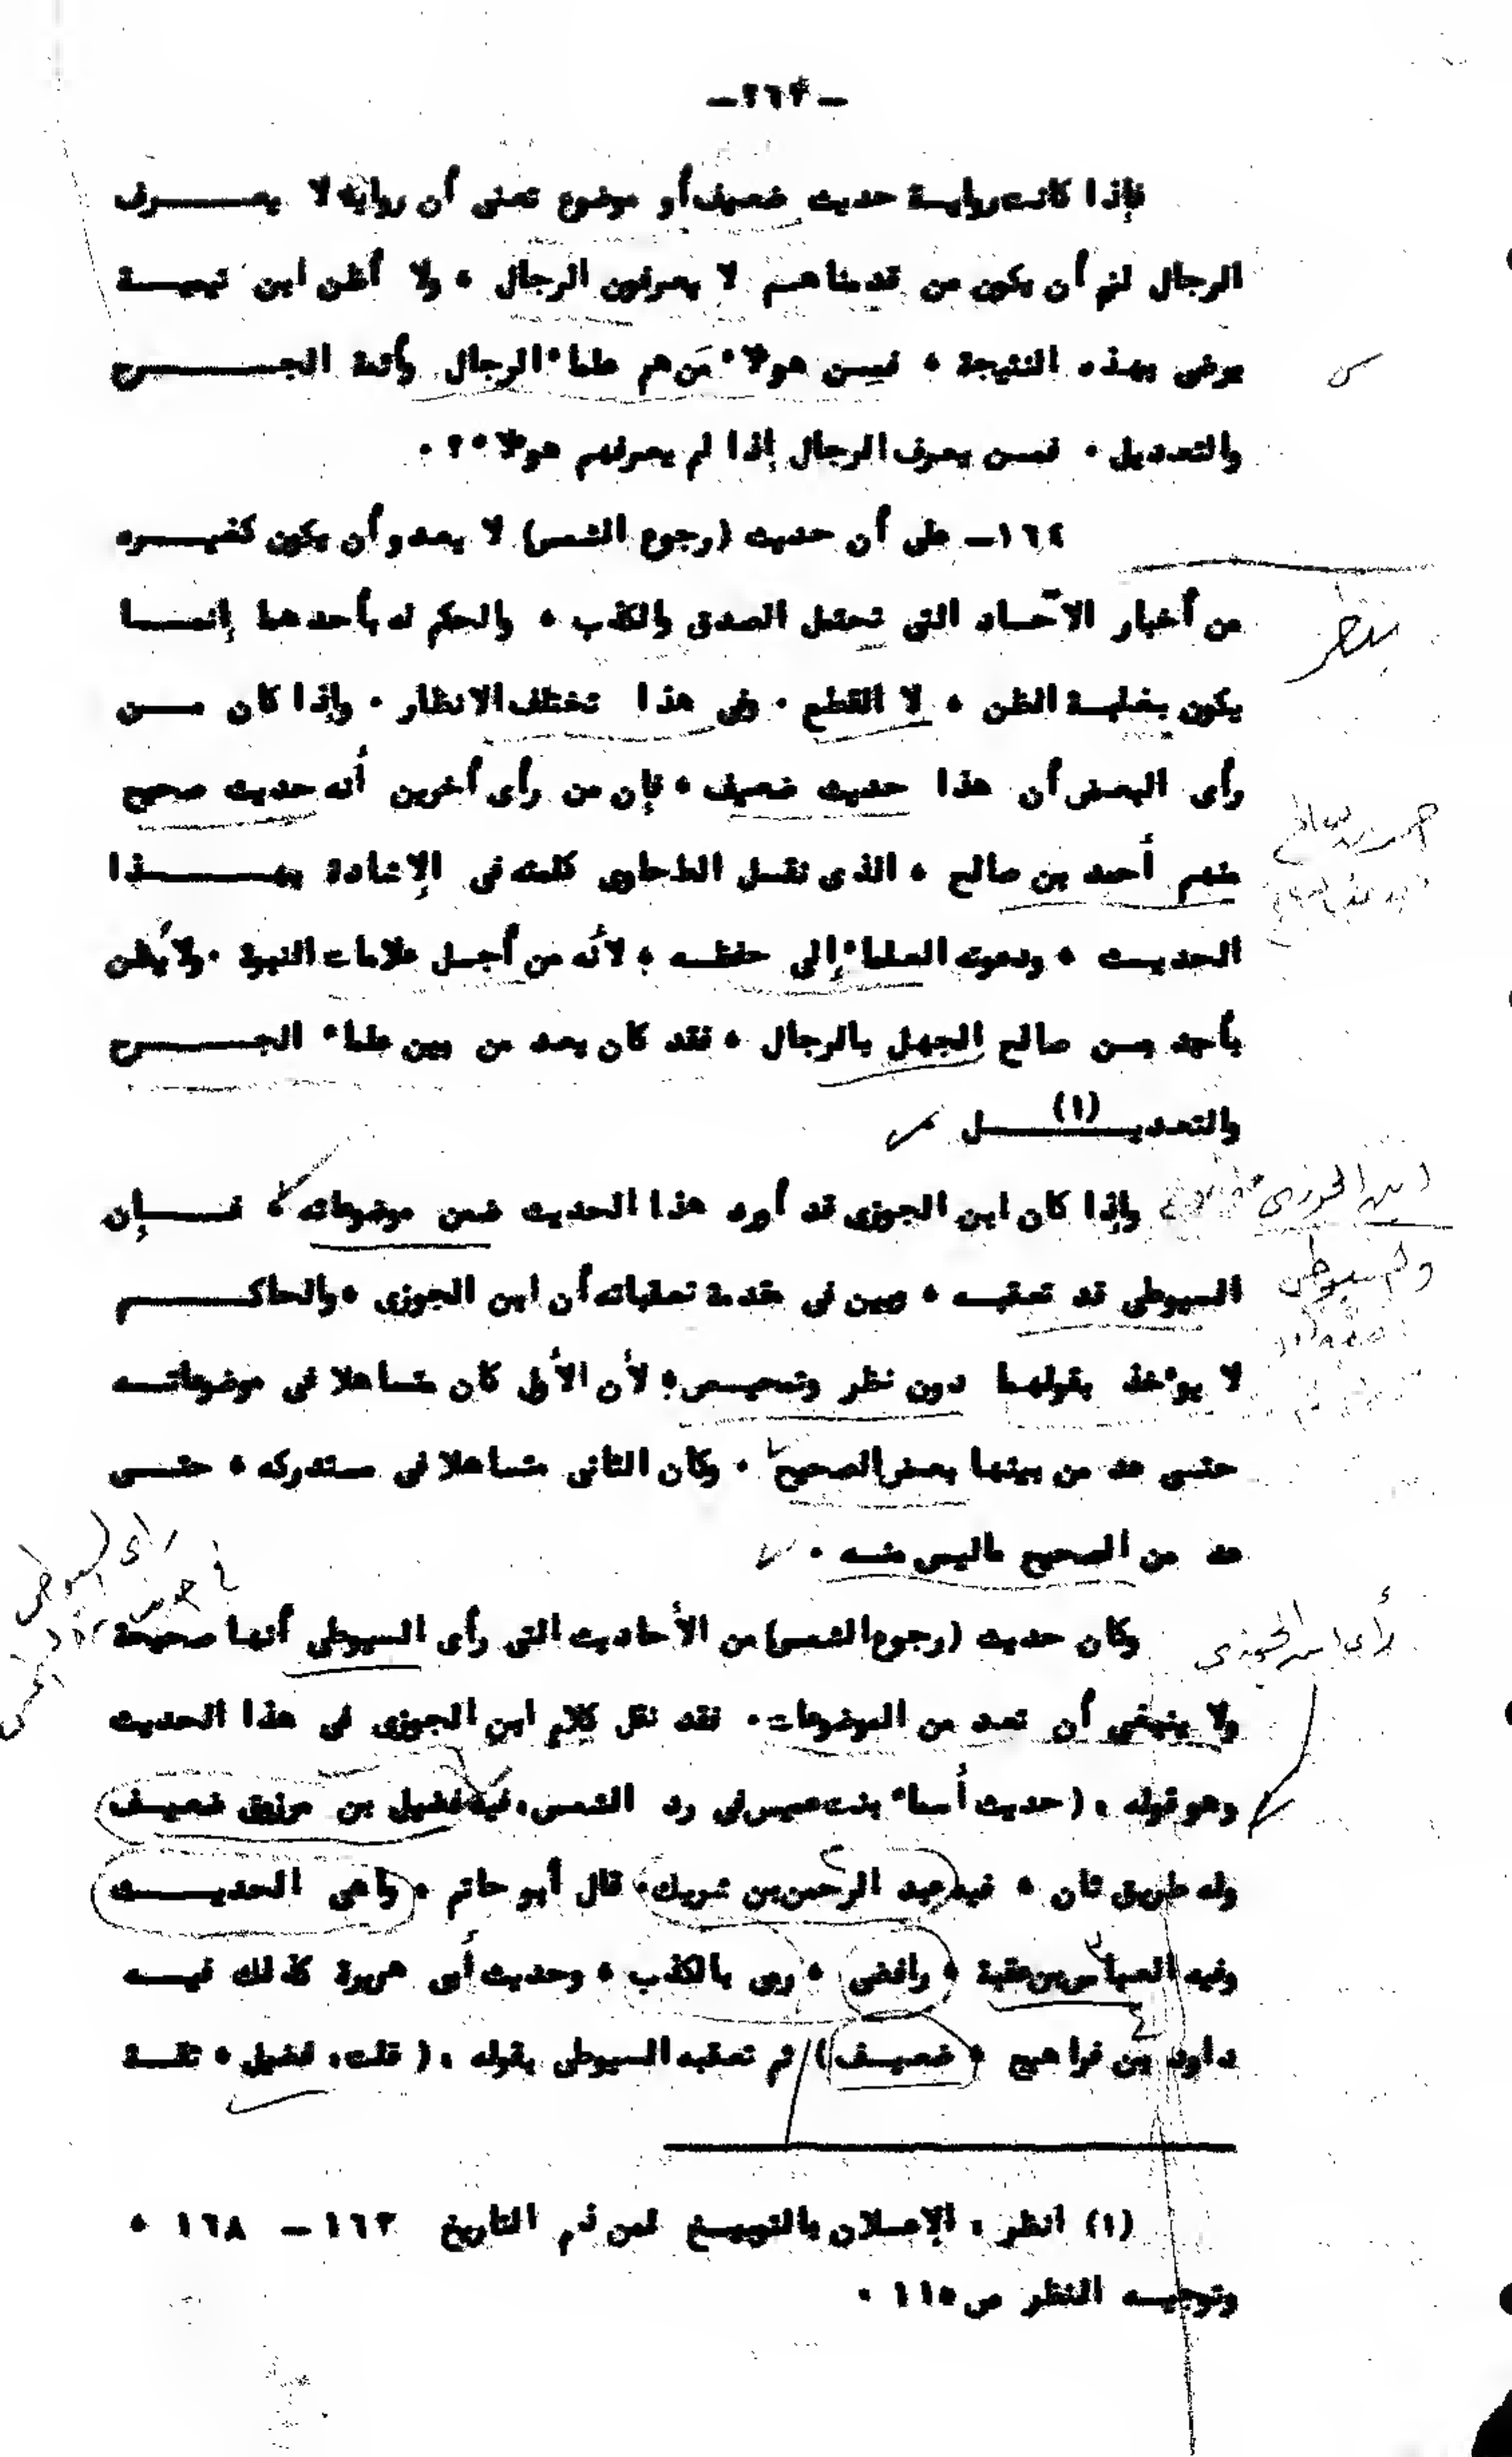 فإذا كانت رواية حديث ضعيف أو موضوع تعنى أن روايه لا يعرف
الرجال لزم أن يكون من قدمناهم لا يعرفون الرجال ، ولا أظن ابن تيمية
يرضى بهذه النتيجة ، فبين هؤلاء من هم علماء الرجال وأئمة الجرح
والتعديل ، فمن يعرف الرجال إذا لم يعرفهم هؤلاء ؟ .
١٦٤ـ على أن حديث (رجوع الشمس) لا يعدو أن يكون كغيره
من أخبار الآحاد التى تحتمل الصدق والكذب ، والحكم له بأحدهما إنما
يكون بغلبة الظن ، لا القطع . وفى هذا تختلف الانظار . وإذا كان من
رأى البعض أن هذا حديث ضعيف ، فإن من رأى آخرين أنه حديث صحيح
منهم أحمد بن صالح ، الذى نقل الطحاوى كلمته فى الإشادة بهذا
الحديث ، ودعوته العلماء إلى حفظه ، لأنه من أجل علامات النبوة . ولا يظن
بأحمد بن صالح الجهل بالرجال ، فقد كان يعد من بين علماء الجرح
والتعديل (١)
وإذا كان ابن الجوزى قد أورد هذا الحديث ضمن موضوعاته ، فإن
السيوطى قد تعقبه ، وبين فى مقدمة تعقباته أن ابن الجوزى ، والحاكم
لا يؤخذ بقولهما دون نظر وتمحيص ؛ لأن الأول كان متساهلا فى موضوعاته
حتى عد من بينها بعض الصحيح . وكان الثانى متساهلا فى مستدركه ، حتى
عد من الصحيح ماليس منه .
وكان حديث (رجوع الشمس) من الأحاديث التى رأى السيوطى أنها صحيحة
ولا ينبغى أن تعد من الموضوعات . فقد نقل كلام ابن الجوزى فى هذا الحديث
وهو قوله : ( حديث أسماء بنت عميس فى رد الشمس ، فيه فضيل بن مرزوق ضعيف
وله طريق ثان ، فيه عبد الرحمن بن شريك ، قال أبو حاتم : واهى الحديث
وفيه العباس بن عقبة ، رافضى ، رمى بالكذب ، وحديث أبى هريرة كذلك فيه
داود بن فراهيج ، ضعيف ) ثم تعقبه السيوطى بقوله : ( قلت : فضيل ، ثقة
(١) انظر : الإعلان بالتوبيخ لمن ذم التاريخ ١٦٣ – ١٦٨ ،
وتوجيه النظر ص ١١٥ .
ابن الجوزى
والسيوطى
رأى ابن الجوزى
رأى السيوطى